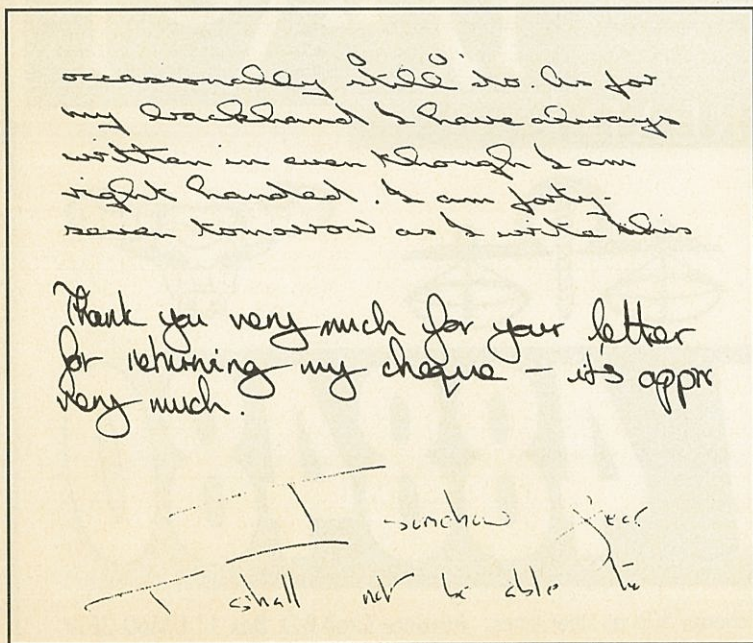 occasionally still do. As for
my backhand I have always
written in even though I am
right handed. I am forty-
seven tomorrow as I write this
Thank you very much for your letter
for returning my cheque – it's appr
very much.
I somehow fear
I shall not be able to